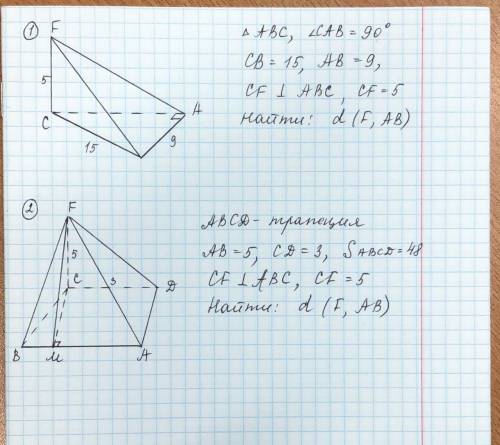 1
F
5
C
A
15
9
△ ABC, ∠CAB = 90°
CB = 15, AB = 9,
CF ⊥ ABC, CF = 5
Найти: d (F, AB)
2
F
5
C
3
D
B
M
A
ABCD - трапеция
AB = 5, CD = 3, SABCD = 48
CF ⊥ ABC, CF = 5
Найти: d (F, AB)